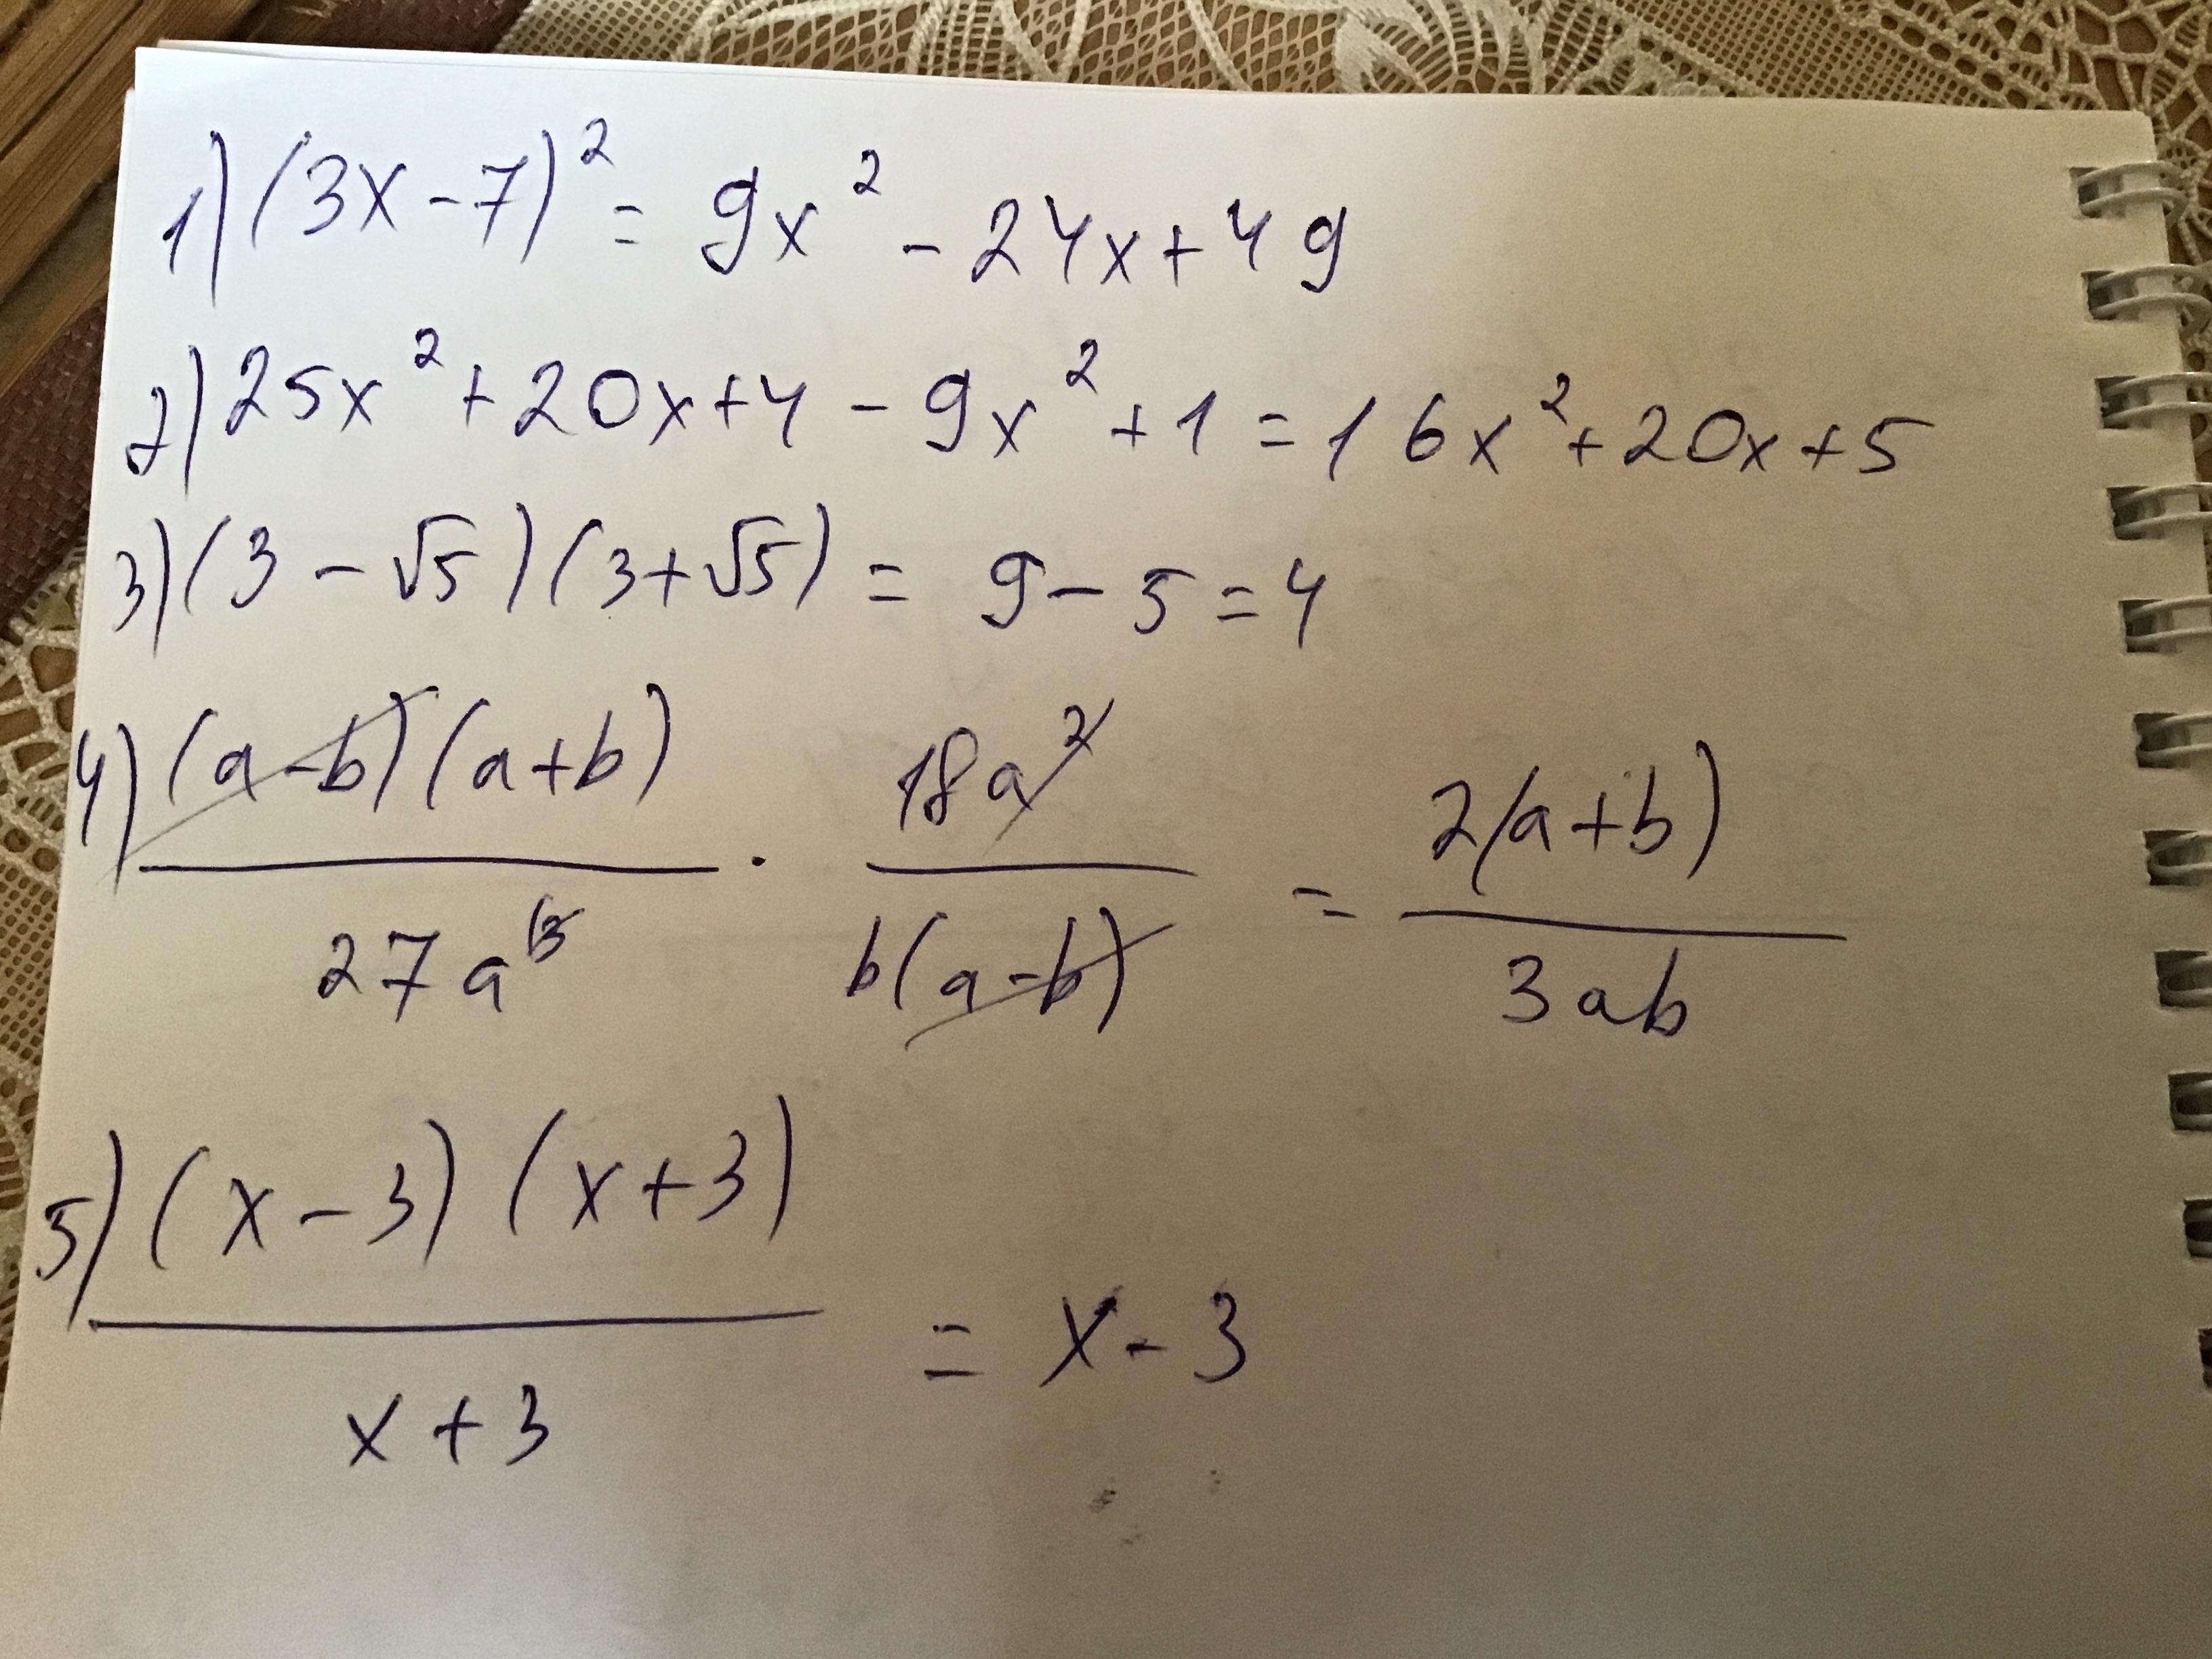 1) (3x-7)² = 9x² - 24x + 49
2) 25x² + 20x + 4 - 9x² + 1 = 16x² + 20x + 5
3) (3 - √5)(3 + √5) = 9 - 5 = 4
4) (a-b)(a+b) / 27a³ · 18a² / b(a-b) = 2(a+b) / 3ab
5) (x-3)(x+3) / x+3 = x-3